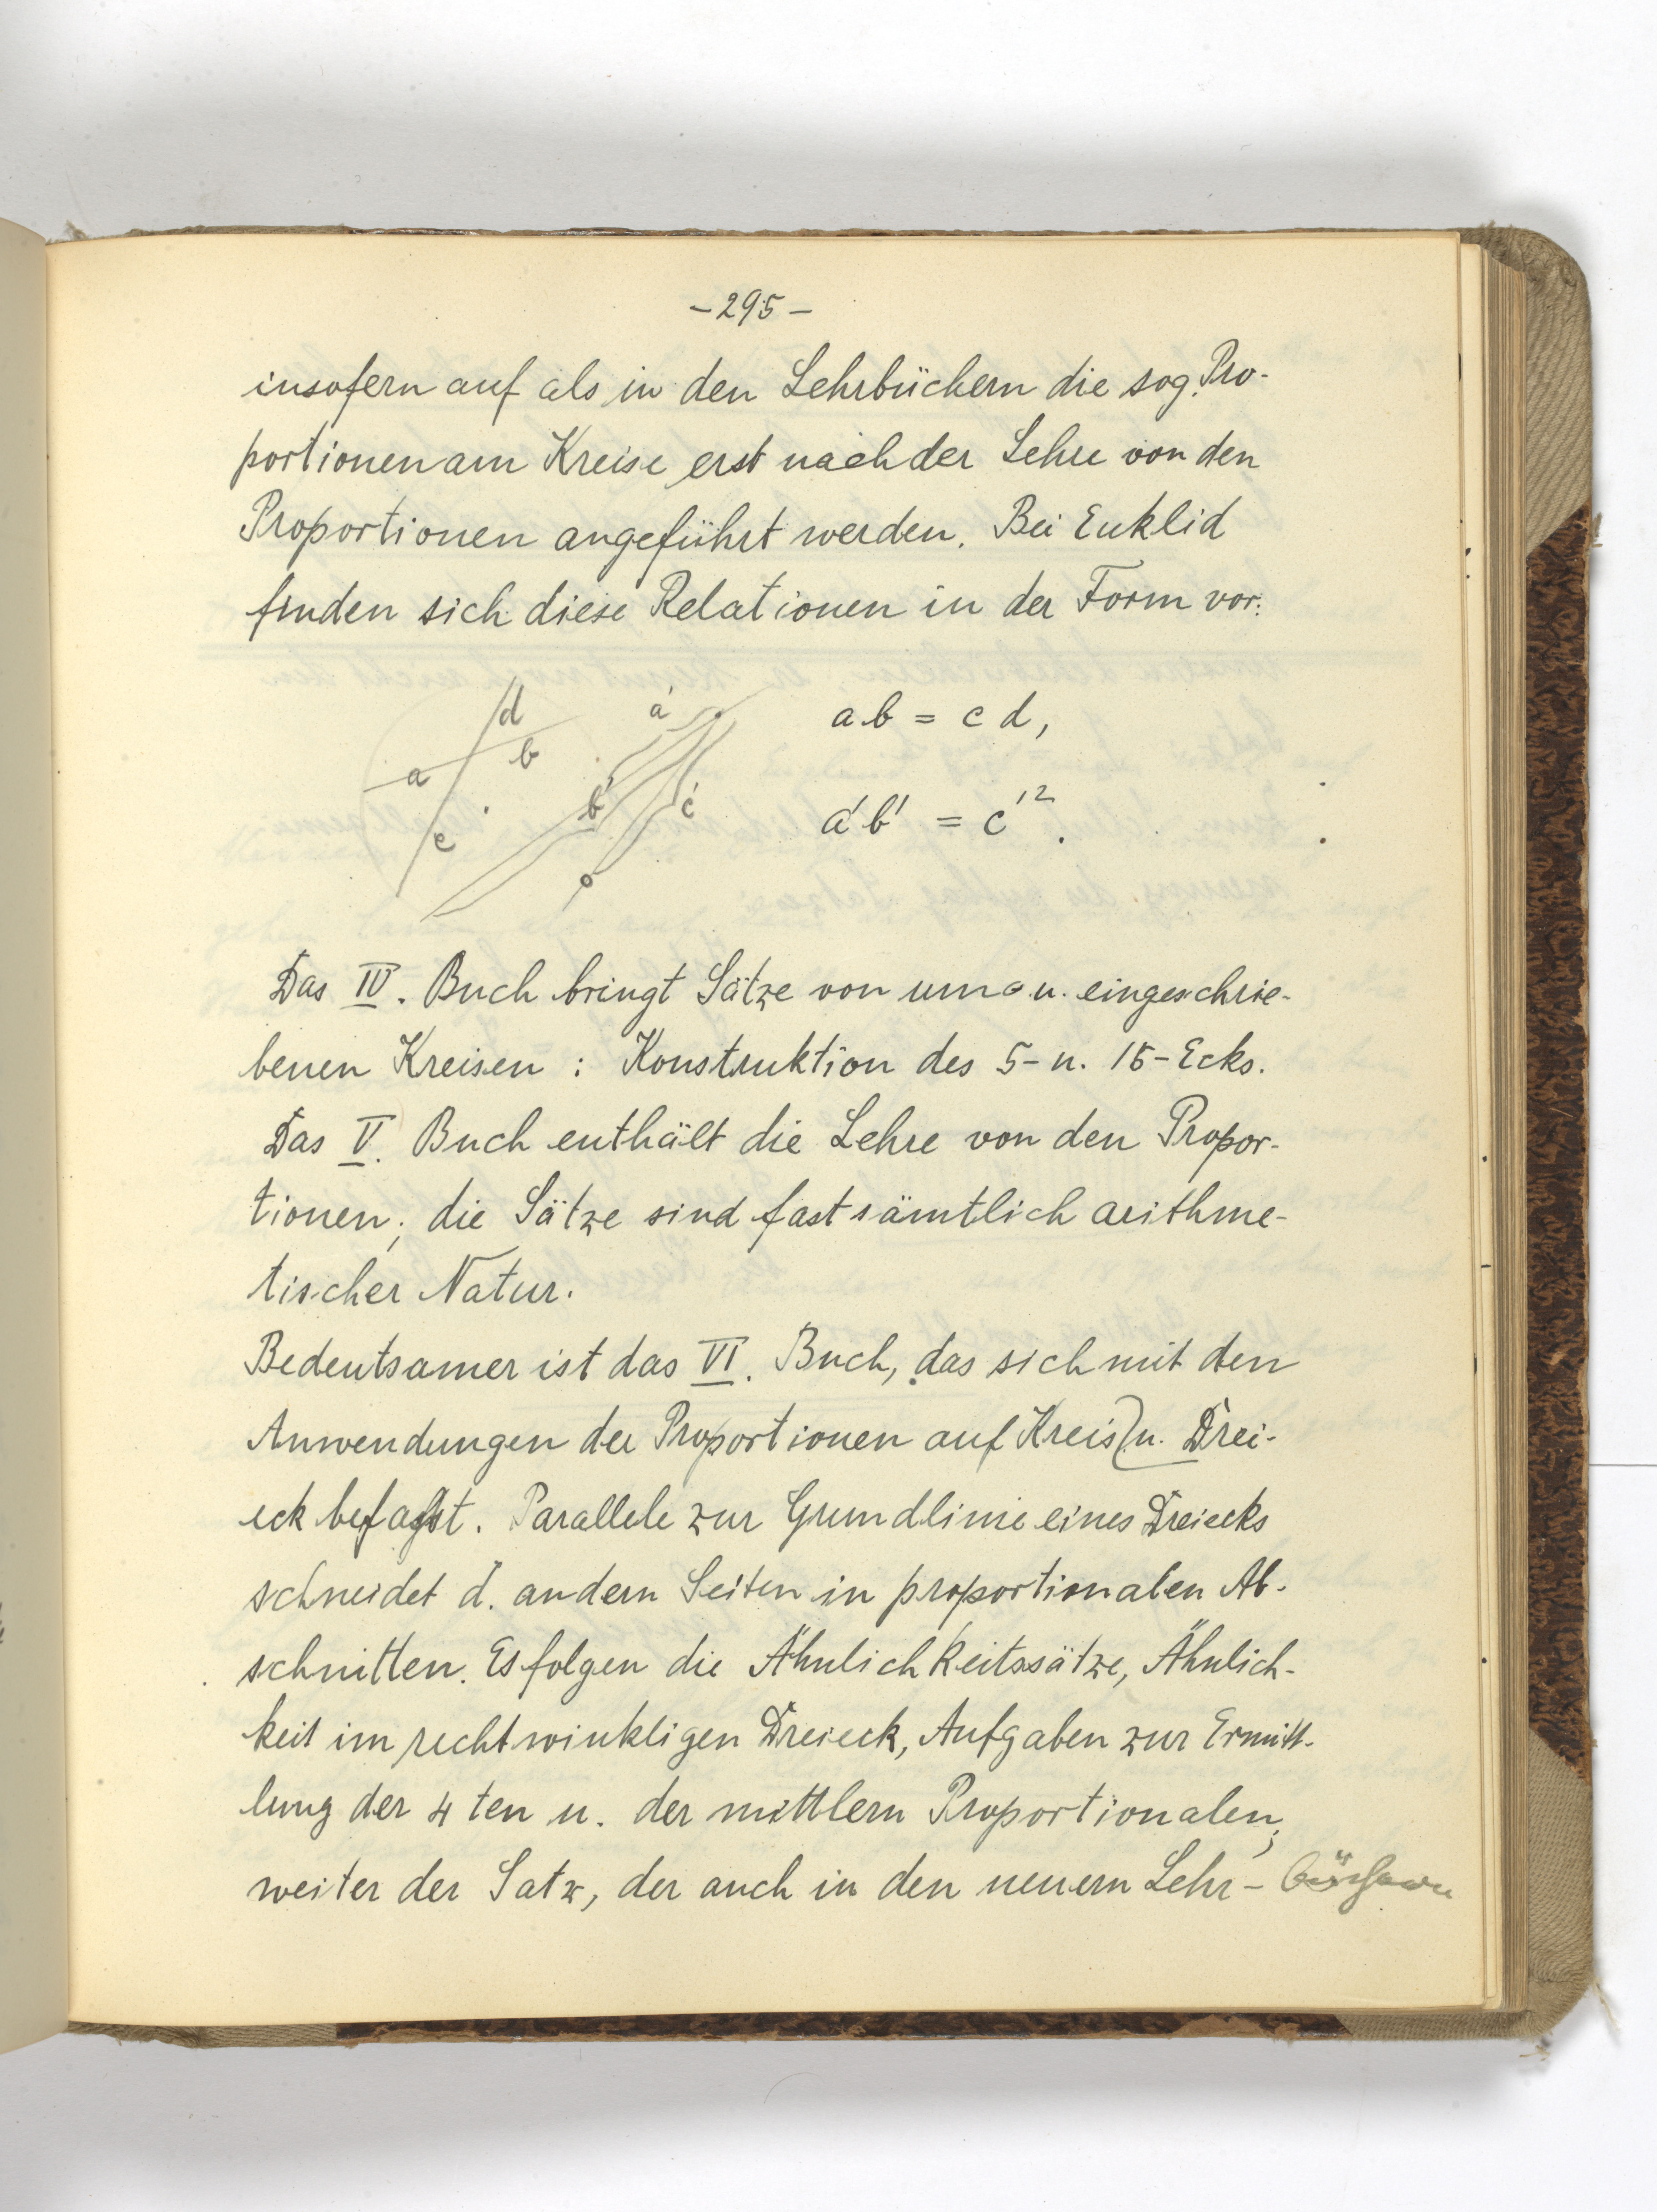 - 295 -
insofern auf als in den Lehrbüchern die sog. Pro-
portionen am Kreise erst nach der Lehre von den
Proportionen angeführt werden. Bei Euklid
finden sich diese Relationen in der Form vor:
d
a'
ab = cd,
a
b
b'
c'
a'b' = c'².
c
Das IV. Buch bringt Sätze von um- u. eingeschrie-
benen Kreisen : Konstruktion des 5- u. 15-Ecks.
Das V. Buch enthält die Lehre von den Propor-
tionen; die Sätze sind fast sämtlich arithme-
tischer Natur.
Bedeutsamer ist das VI. Buch, das sich mit den
Anwendungen der Proportionen auf Kreis u. Drei-
eck befaßt. Parallele zur Grundlinie eines Dreiecks
schneidet d. andern Seiten in proportionalen Ab-
schnitten. Es folgen die Ähnlichkeitssätze, Ähnlich-
keit im rechtwinkligen Dreieck, Aufgaben zur Ermitt-
lung der 4 ten u. der mittlern Proportionalen,
weiter der Satz, der auch in den neuern Lehr- büchern